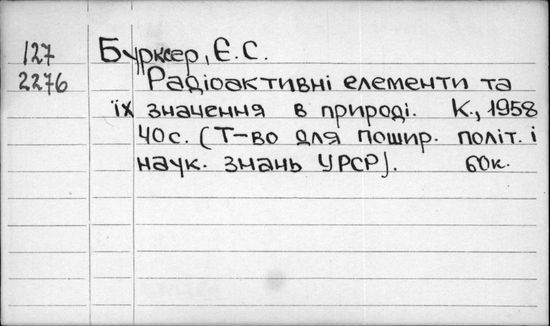 127 Бурксер, Є. С.
2276 Радіоактивні елементи та
їх значення в природі. К., 1958
40с. (Т-во для пошир. політ. і
наук. знань УРСР). 60к.